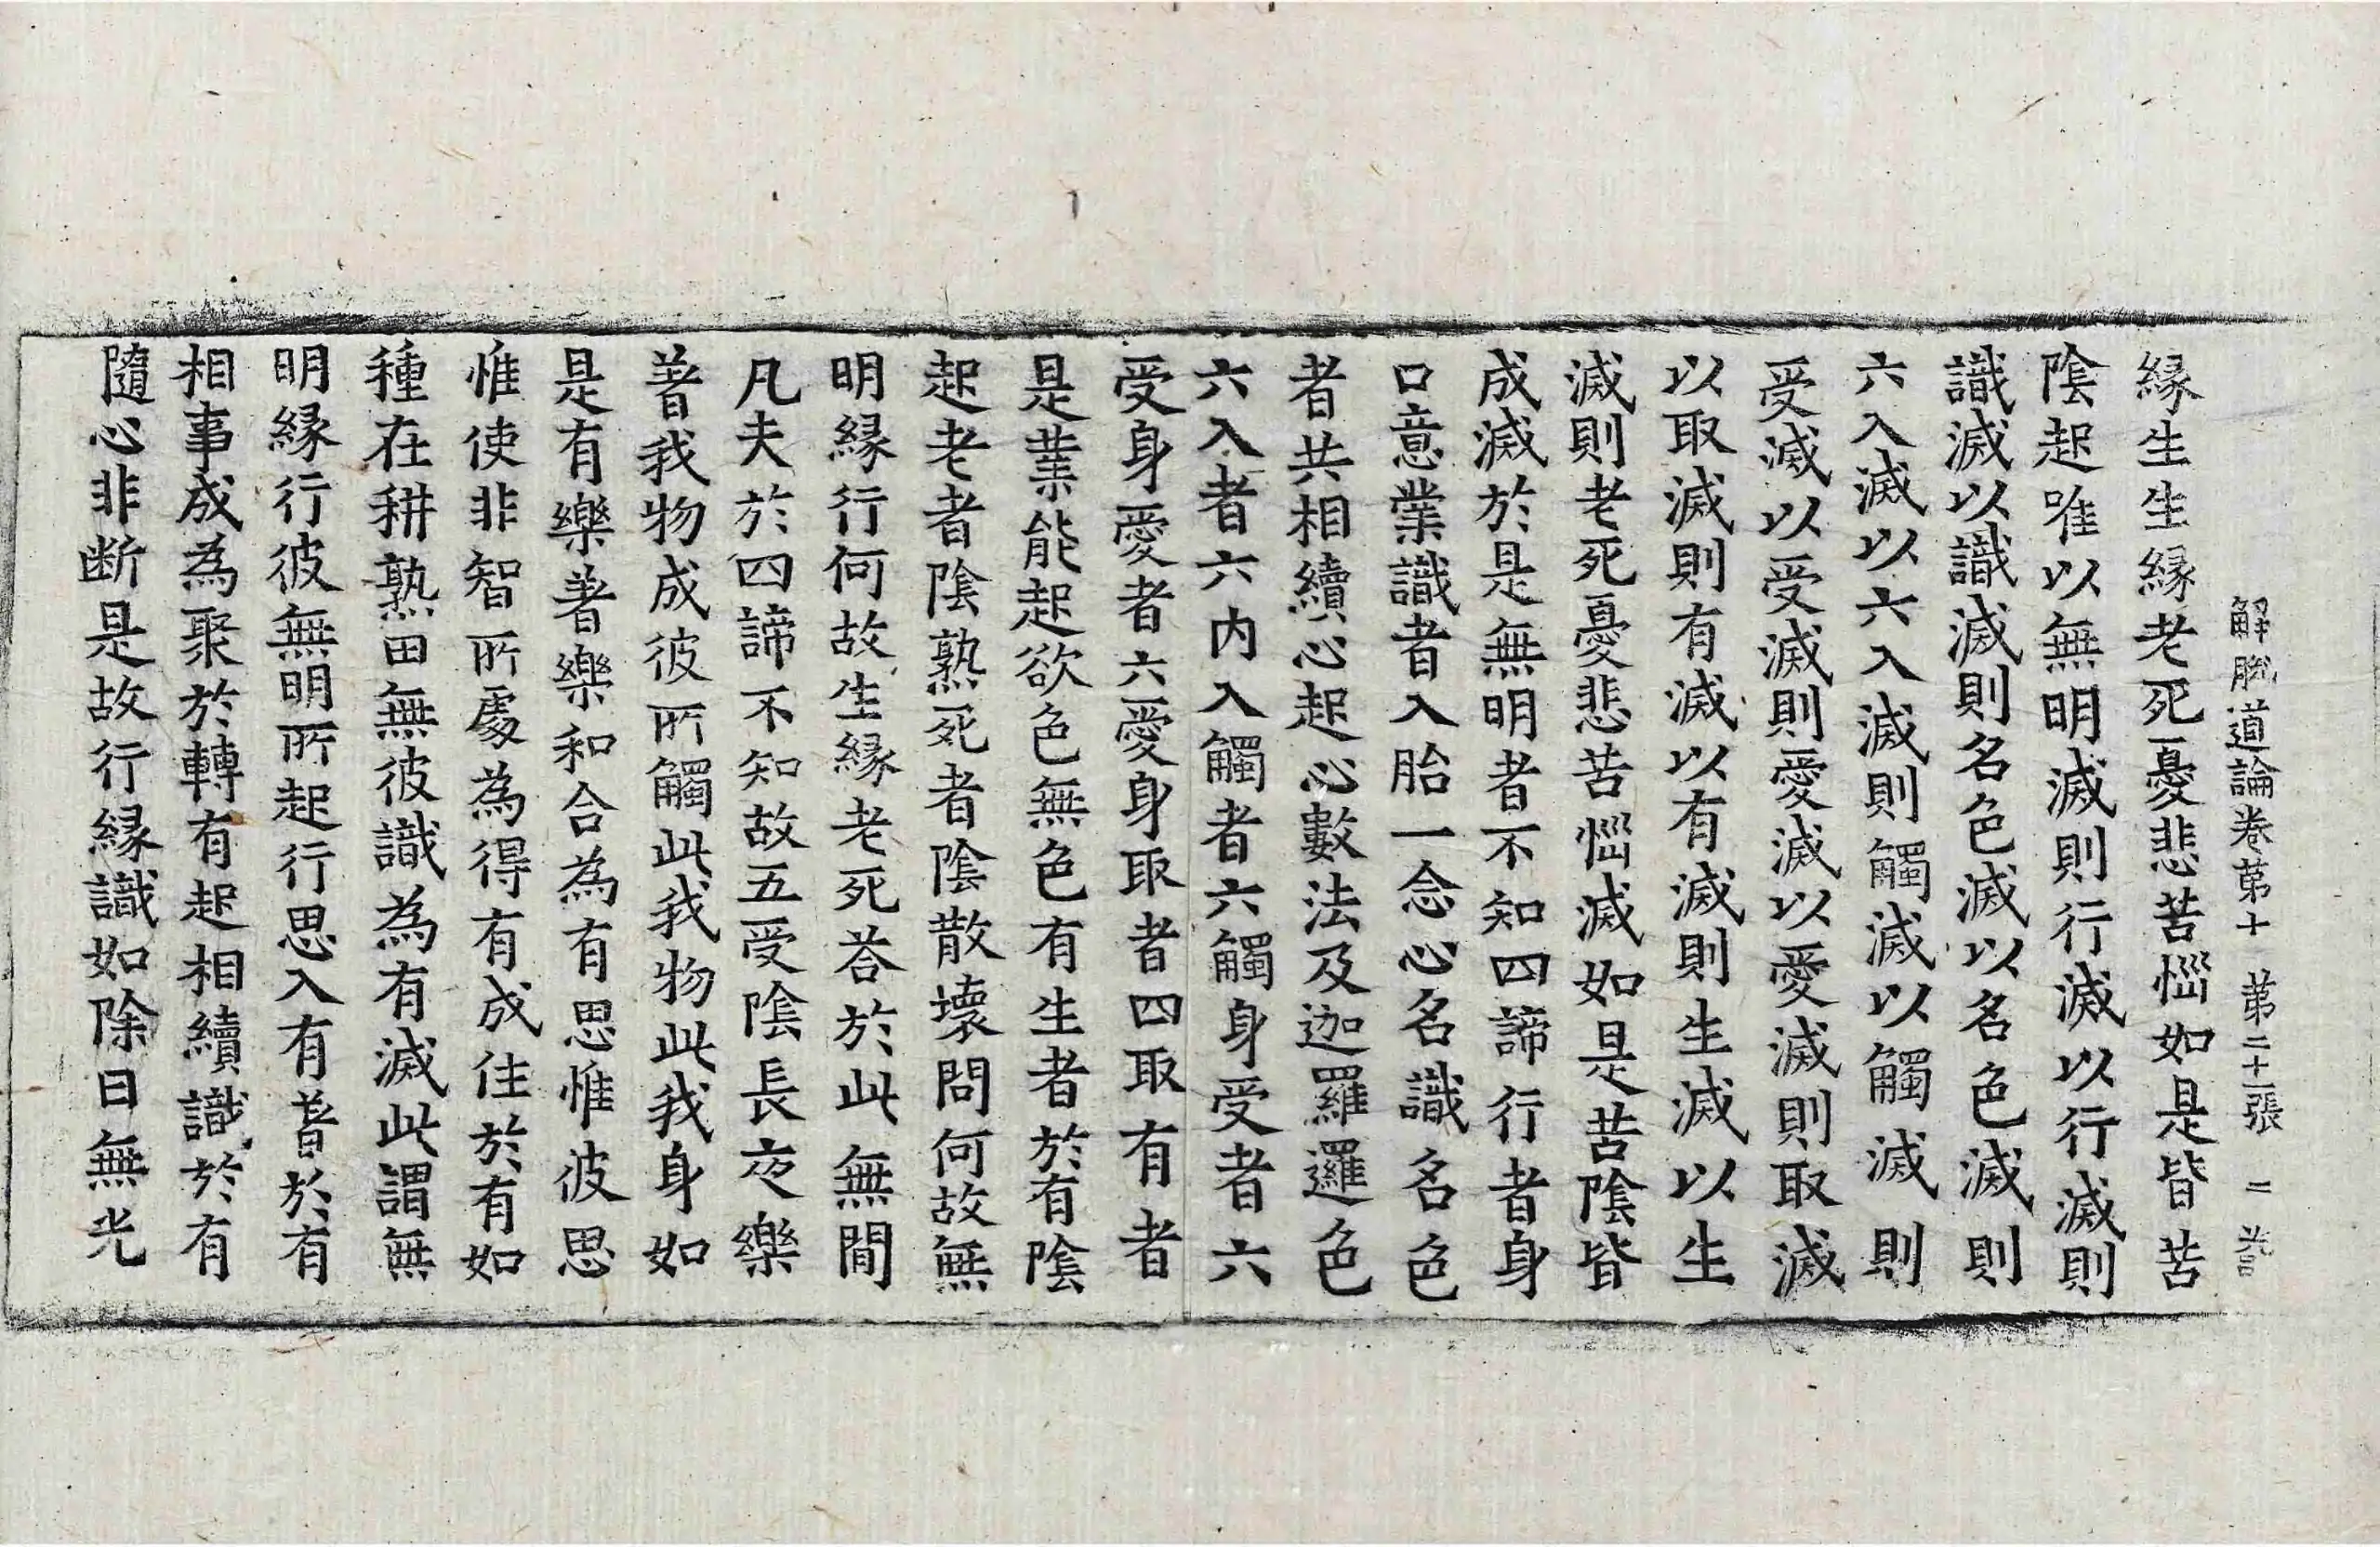 解脫道論卷第十　第二十一張　二
縁生生縁老死憂悲苦惱如是皆苦
陰起唯以無明滅則行滅以行滅則
識滅以識滅則名色滅以名色滅則
六入滅以六入滅則觸滅以觸滅則
受滅以受滅則愛滅以愛滅則取滅
以取滅則有滅以有滅則生滅以生
滅則老死憂悲苦惱滅如是苦陰皆
成滅於是無明者不知四諦行者身
口意業識者入胎一念心名識名色
者共相續心起心數法及迦羅邏色
六入者六内入觸者六觸身受者六
受身愛者六愛身取者四取有者
是業能起欲色無色有生者於有陰
起老者陰熟死者陰散壞問何故無
明縁行何故生縁老死荅於此無間
凡夫於四諦不知故五受陰長夜樂
著我物成彼所觸此我物此我身如
是有樂著樂和合為有思惟彼思
惟使非智所處為得有成住於有如
種在耕熟田無彼識為有滅此謂無
明縁行彼無明所起行思入有著於有
相事成為聚於轉有起相續識於有
隨心非断是故行縁識如除日無光